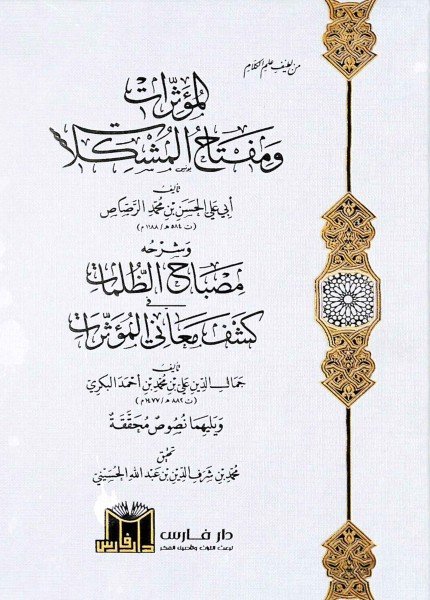 من لطيف علم الكلام
المُؤثِّرَات
وَمِفْتَاحُ المُشْكِلَات
تأليف
أبي علي الحسن بن محمد الرصاص
(ت ٥٨٤هـ/١١٨٨م)
وشرحه
مِصْبَاحُ الظُّلُمَاتِ
في
كَشْفِ مَعَانِي المُؤَثِّرَاتِ
تأليف
جمال الدين علي بن محمد بن أحمد البكري
(ت ٨٨٢هـ/١٤٧٧م)
وَيَلِيهِمَا نُصُوصٌ مُحَقَّقَةٌ
تحقيق
محمد بن شرف الدين بن عبد الله الحسيني
دار فارس
لبعث التراث وتأصيل الفكر
دار فارس